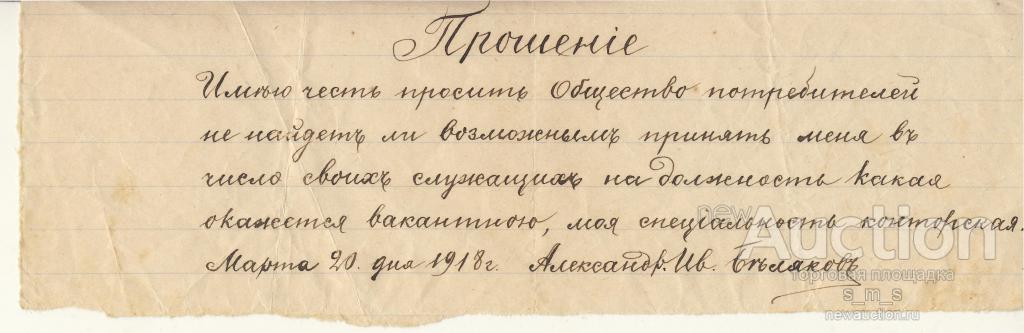 Прошеніе
Имѣю честь просить Общество потребителей
не найдетъ ли возможнымъ принять меня въ
число своихъ служащихъ на должность какая
окажется вакантною, моя спеціальность конторская.
Марта 20. дня 1918 г. Александр. Ив. Бѣляковъ
newAuction
торговая площадка
s_m_s
newauction.ru